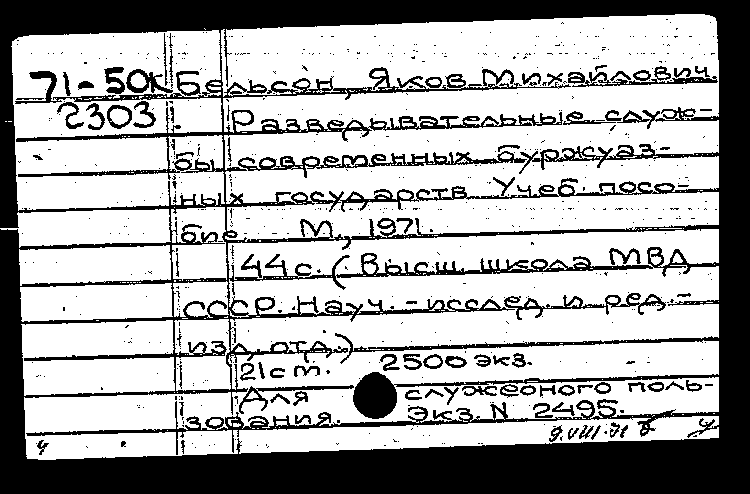 71-50К Бельсон, Яков Михайлович.
2303. Разведывательные служ-
бы современных буржуаз-
ных государств Учеб. посо-
бие М., 1971.
44 с. (Высш. школа МВД
СССР. Науч.-исслед. и ред.-
изд. отд.)
21 см. 2500 экз.
Для служебного поль-
зования. Экз. N 2495.
9.VIII.71